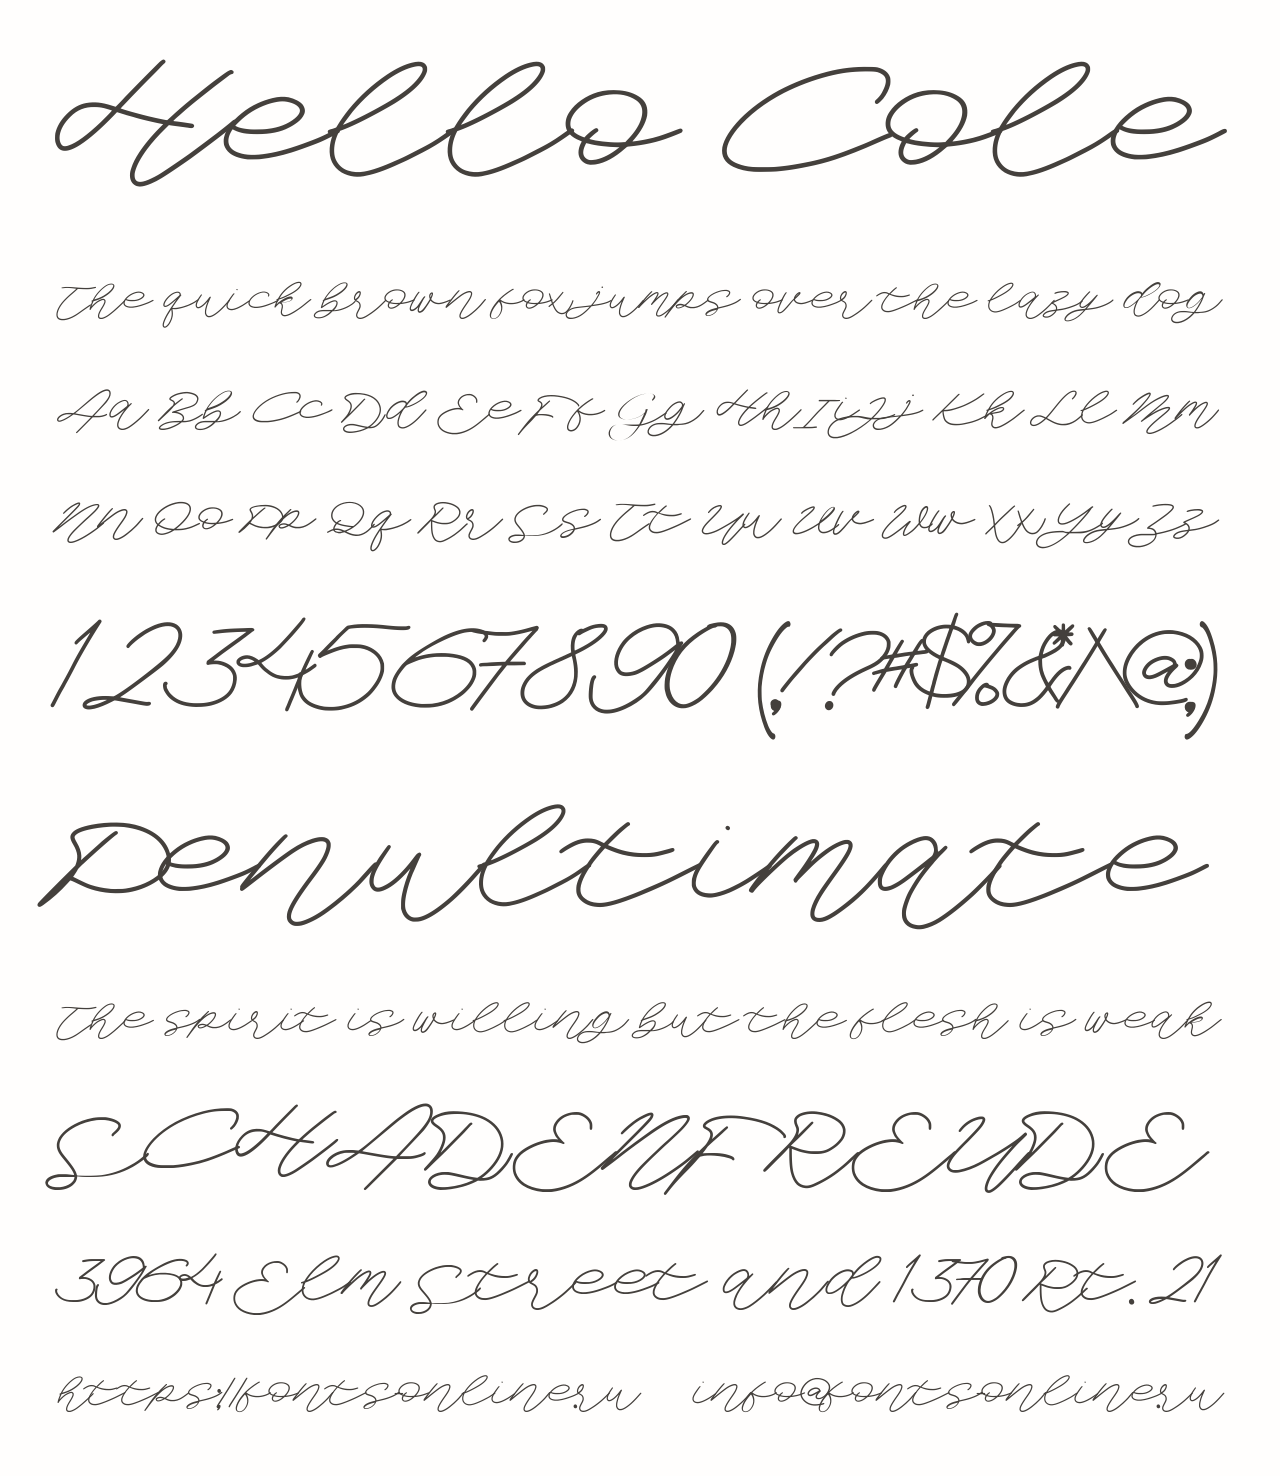 Hello Cole
The quick brown fox jumps over the lazy dog
Aa Bb Cc Dd Ee Ff Gg Hh Ii Jj Kk Ll Mm
Nn Oo Pp Qq Rr Ss Tt Uu Vv Ww Xx Yy Zz
1234567890 (,!.?#$%&*/\@:;)
Penultimate
The spirit is willing but the flesh is weak
SCHADENFREUDE
3964 Elm Street and 1370 Rt. 21
https://fontsonline.ru info@fontsonline.ru